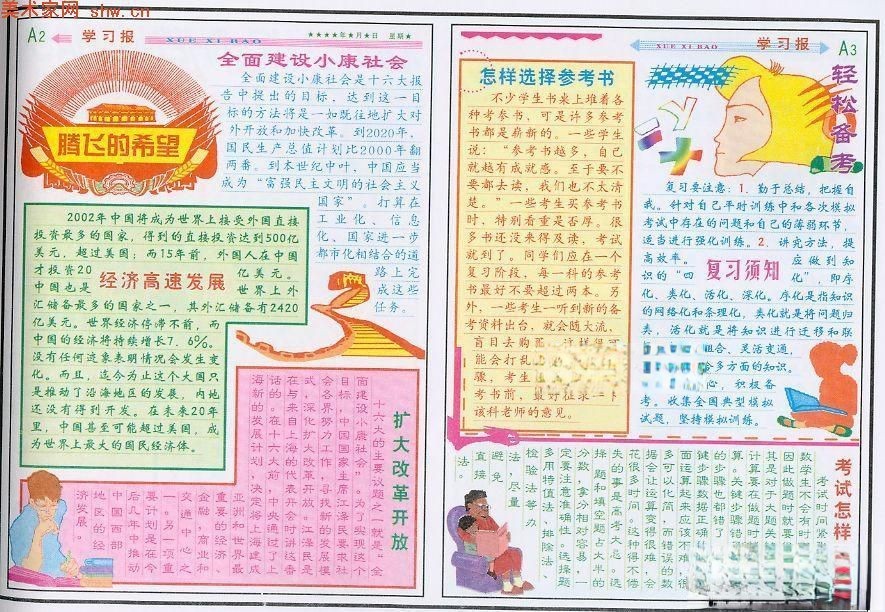 美术家网 shw.cn
A2
学习报
XUE XI BAO
★★★★年★月★日 星期★
全面建设小康社会
全面建设小康社会是十六大报
告中提出的目标，达到这一目
标的方法将是一如既往地扩大对
外开放和加快改革。到2020年，
国民生产总值计划比2000年翻
两番。到本世纪中叶，中国应当
成为“富强民主文明的社会主义
国家”。打算在
工业化、信息
化、国家进一步
都市化相结合的道
路上完
成这些
任务。
腾飞的希望
2002年中国将成为世界上接受外国直接
投资最多的国家，得到的直接投资达到500亿
美元，超过美国；而15年前，外国人在中国
才投资20亿美元。
中国也是世界上外
汇储备最多的国家之一，其外汇储备有2420
亿美元。世界经济停滞不前，而
中国的经济将持续增长7.6%。
没有任何迹象表明情况会发生变
化。而且，迄今为止这个大国只
是推动了沿海地区的发展，内地
还没有得到开发。在未来20年
里，中国甚至可能超过美国，成
为世界上最大的国民经济体。
经济高速发展
扩大改革开放
十六大的主要议题之一就是“全
面建设小康社会”。为了实现这个
目标，中国国家主席江泽民要求社
会各界努力工作，寻找新的发展模
式，深化扩大改革开放。江泽民是
在与来自上海的代表开会时讲这番
话的。在十六大前，中央通过了上
海新的发展计划，决定将上海建成
亚洲和世界最
重要的经济、
金融，商业和
交通中心之
一。另一项重
要计划是在今
后几年中推动
中国西部
地区的经
济发展。
XUE XI BAO
学习报
A3
怎样选择参考书
不少学生书桌上堆着各
种考参书，可是许多参考
书都是崭新的。一些学生
说：“参考书越多，自己
就越有成就感。至于要不
要都去读，我们也不太清
楚。”一些考生买参考书
时，特别看重是否厚。很
多书还没来得及读，考试
就到了。同学们应在一个
复习阶段，每一科的参考
书最好不要超过两本。另
外，一些考生一听到新的备
考资料出台，就会随大流，
盲目去购
能会打乱
骤，考生
考书前，最好征求一下
该科老师的意见。
轻松备考
复习要注意：1.勤于总结，把握自
我。针对自己平时训练中和各次模拟
考试中存在的问题和自己的薄弱环节，
适当进行强化训练。2.讲究方法，提
高效率。应做到知
识的“四化”，即序
化、类化、活化、深化。序化是指知识
的网络化和条理化，类化就是将问题归
类，活化就是将知识进行迁移和联
组合、灵活变通，
多方面的知识。
心，积极备
考。收集全国典型模拟
试题，坚持模拟训练。
复习须知
考试怎样
考试时间紧
数学生不会有时
因此做题时就要
其是对于大题关
计算要在做题时
算。关键步骤错
的步也都错了
键步骤数据正确
面运算起来应该不难，很
多可以化简，而错误的数
据会让运算变得很难，会
花很多时间。这种得不偿
失的事是高考大忌。选
择题和填空题占大半的
分数，拿分相对容易，一
定要注意准确性。选择题
多用特值法、排除法、
检验法等办
法，尽量
避免
直接
法。